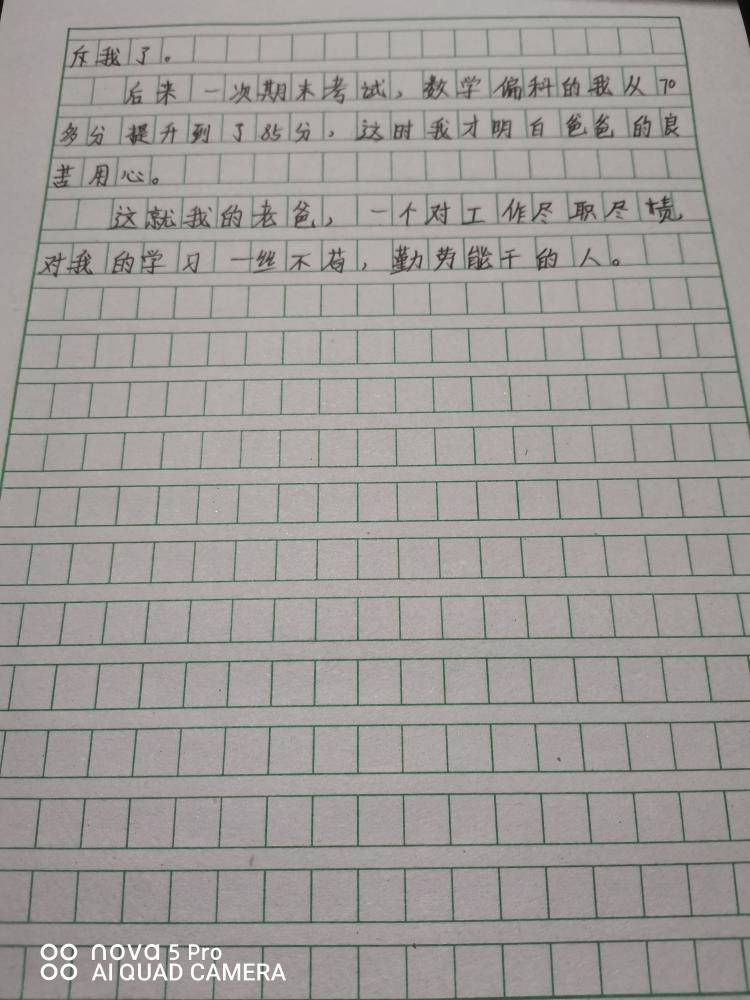 斥我了。
后来一次期末考试，数学偏科的我从70
多分提升到了85分，这时我才明白爸爸的良
苦用心。
这就我的老爸，一个对工作尽职尽责，
对我的学习一丝不苟，勤劳能干的人。
nova 5 Pro
AI QUAD CAMERA